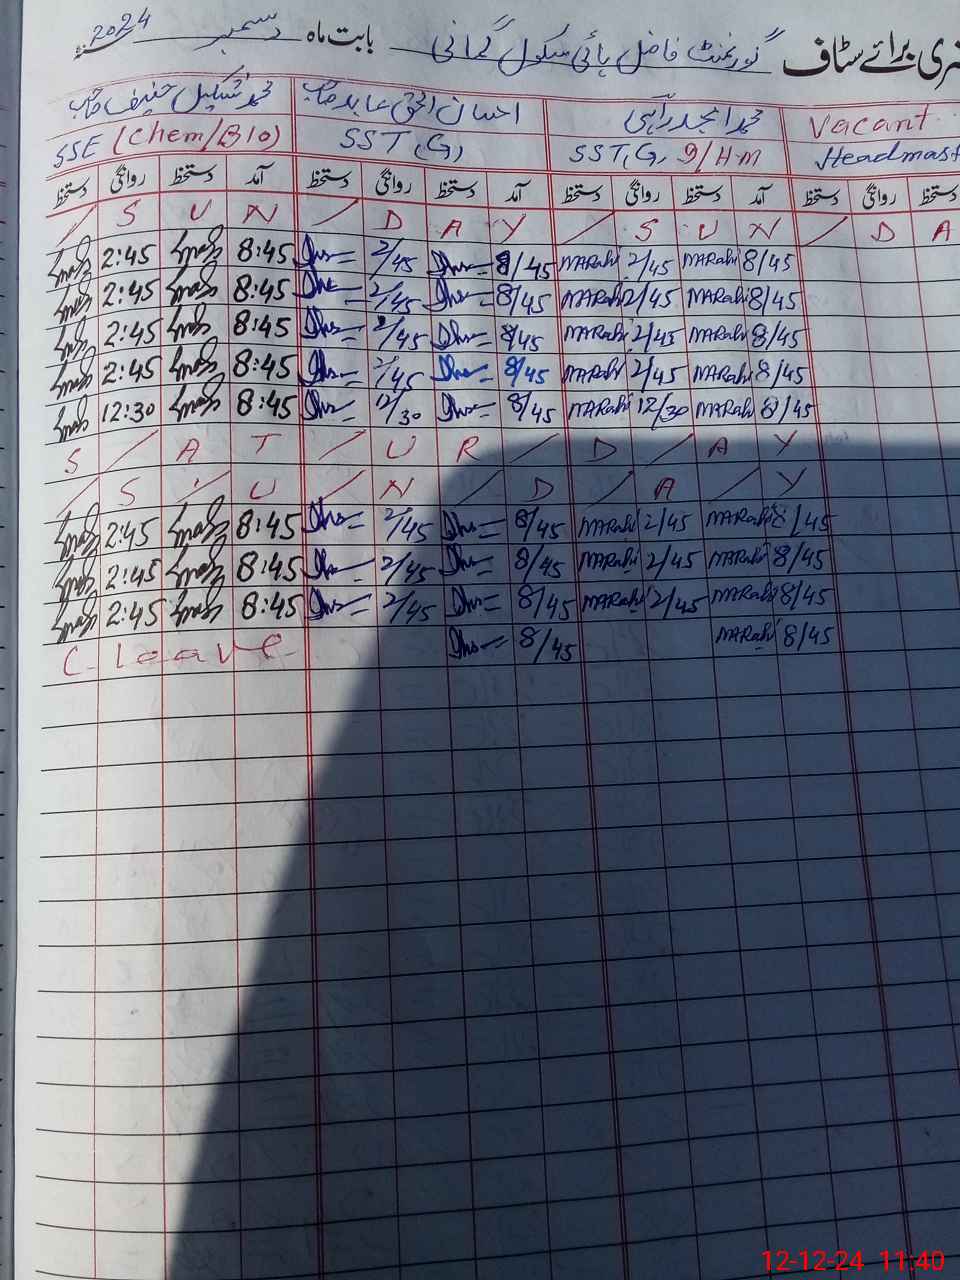 ضری برائے سٹاف گورنمنٹ فاضل ہائی سکول گمانی بابت ماہ دسمبر 2024
Vacant محمد امجد راہی احسان الحق عابد صاحب محمد شکیل حنیف صاحب
SSE (Chem/BIO) SST(G) SST(G) I/H.M Headmast
دستخط روانگی دستخط آمد دستخط روانگی دستخط آمد دستخط روانگی دستخط آمد دستخط روانگی دستخط
/ S U N / D A Y / S U N / D A
2:45 8:45 2/45 8/45 MARahi 2/45 MARahi 8/45
2:45 8:45 2/45 8/45 MARahi 2/45 MARahi 8/45
2:45 8:45 2/45 8/45 MARahi 2/45 MARahi 8/45
2:45 8:45 2/45 8/45 MARahi 2/45 MARahi 8/45
12:30 8:45 12/30 8/45 MARahi 12/30 MARahi 8/45
S / A T / U R / D / A Y
/ S U / N / D / A / Y
2:45 8:45 2/45 8/45 MARahi 2/45 MARahi 8/45
2:45 8:45 2/45 8/45 MARahi 2/45 MARahi 8/45
2:45 8:45 2/45 8/45 MARahi 2/45 MARahi 8/45
C- leave 8/45 MARahi 8/45
12-12-24 11:40